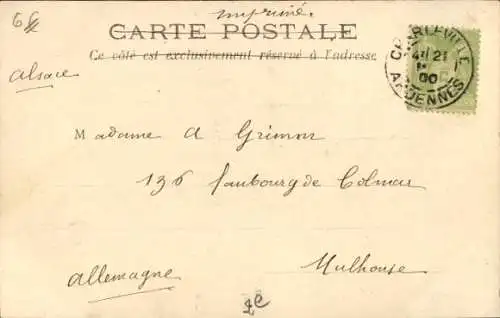 imprimé.
CARTE POSTALE
Ce côté est exclusivement réservé à l'adresse
CHARLEVILLE
21
00
ARDENNES
Alsace
Madame A Grimon
136 faubourg de Colmar
Mulhouse
Allemagne